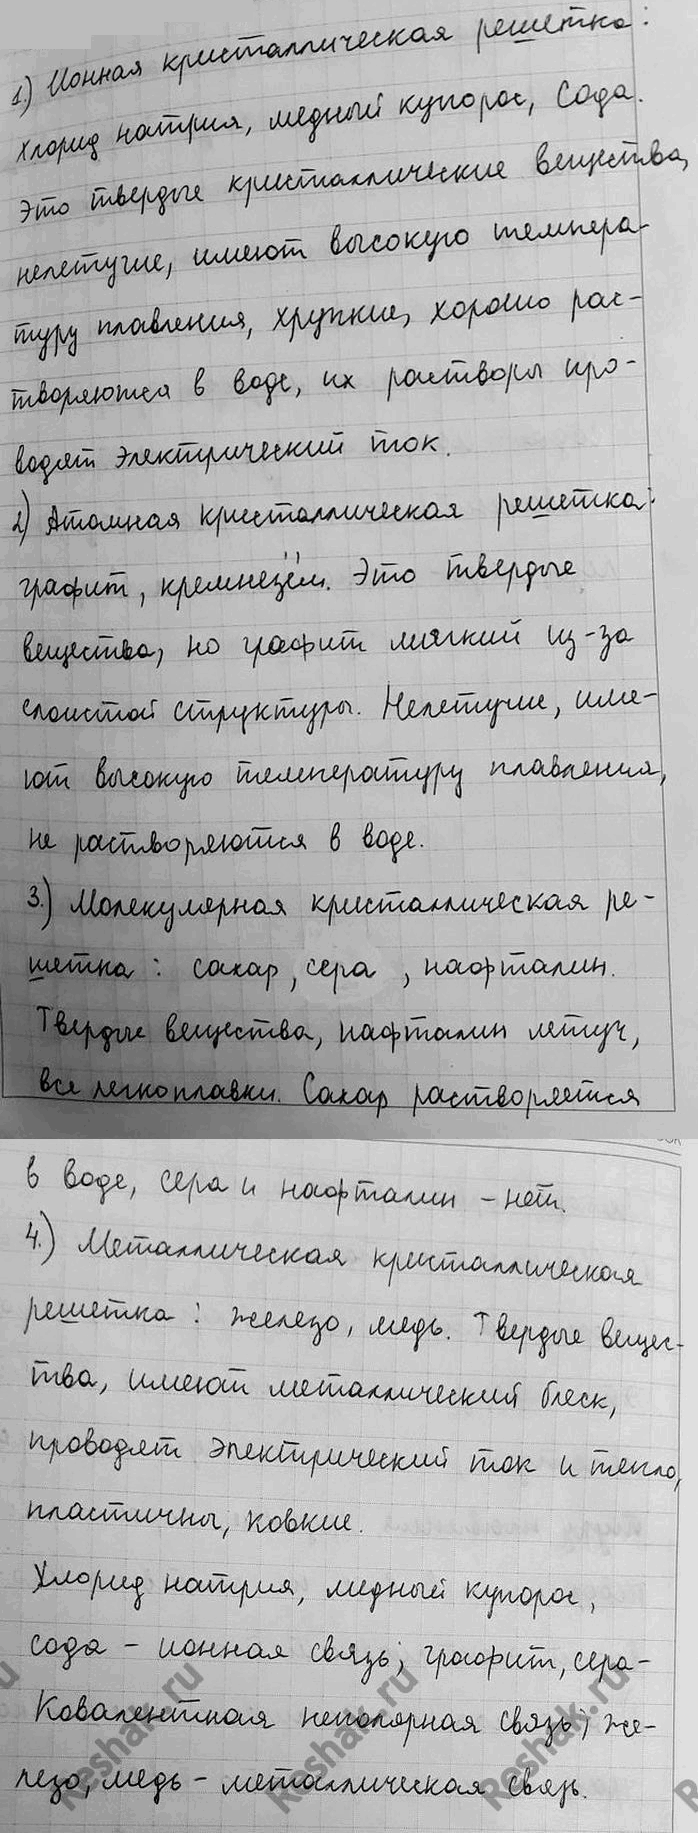 1.) Ионная кристаллическая решетка:
Хлорид натрия, медный купорос, сода.
Это твердые кристаллические вещества,
нелетучие, имеют высокую темпера-
туру плавления, хрупкие, хорошо рас-
творяются в воде, их растворы про-
водят электрический ток.
2) Атомная кристаллическая решетка:
графит, кремнезём. Это твердые
вещества, но графит мягкий из-за
слоистой структуры. Нелетучие, име-
ют высокую температуру плавления,
не растворяются в воде.
3.) Молекулярная кристаллическая ре-
шетка: сахар, сера, нафталин.
Твердые вещества, нафталин летуч,
все легкоплавки. Сахар растворяется
в воде, сера и нафталин - нет.
4.) Металлическая кристаллическая
решетка: железо, медь. Твердые вещес-
тва, имеют металлический блеск,
проводят электрический ток и тепло,
пластичны, ковкие.
Хлорид натрия, медный купорос,
сода - ионная связь; графит, сера -
Ковалентная неполярная связь; же-
лезо, медь - металлическая связь.
Reshak.ru
Reshak.ru
Reshak.ru